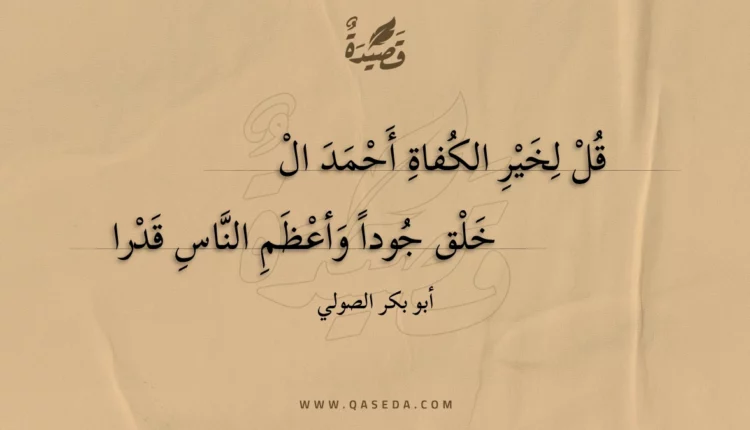 قَصِيدَةٌ
قُلْ لِخَيْرِ الكُفاةِ أَحْمَدَ الْ
خَلْق جُوداً وَأعْظَمِ النَّاسِ قَدْرا
أبو بكر الصولي
WWW.QASEDA.COM